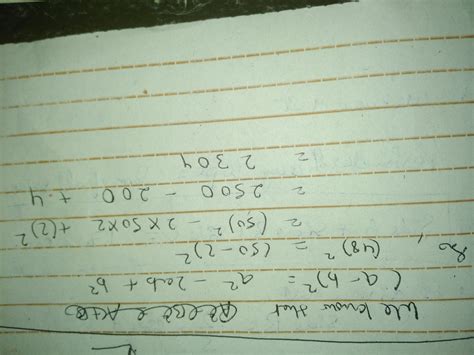 We know that
(a - b)² = a² - 2ab + b²
So, (48)² = (50-2)²
= (50)² - 2×50×2 + (2)²
= 2500 - 200 + 4
= 2304